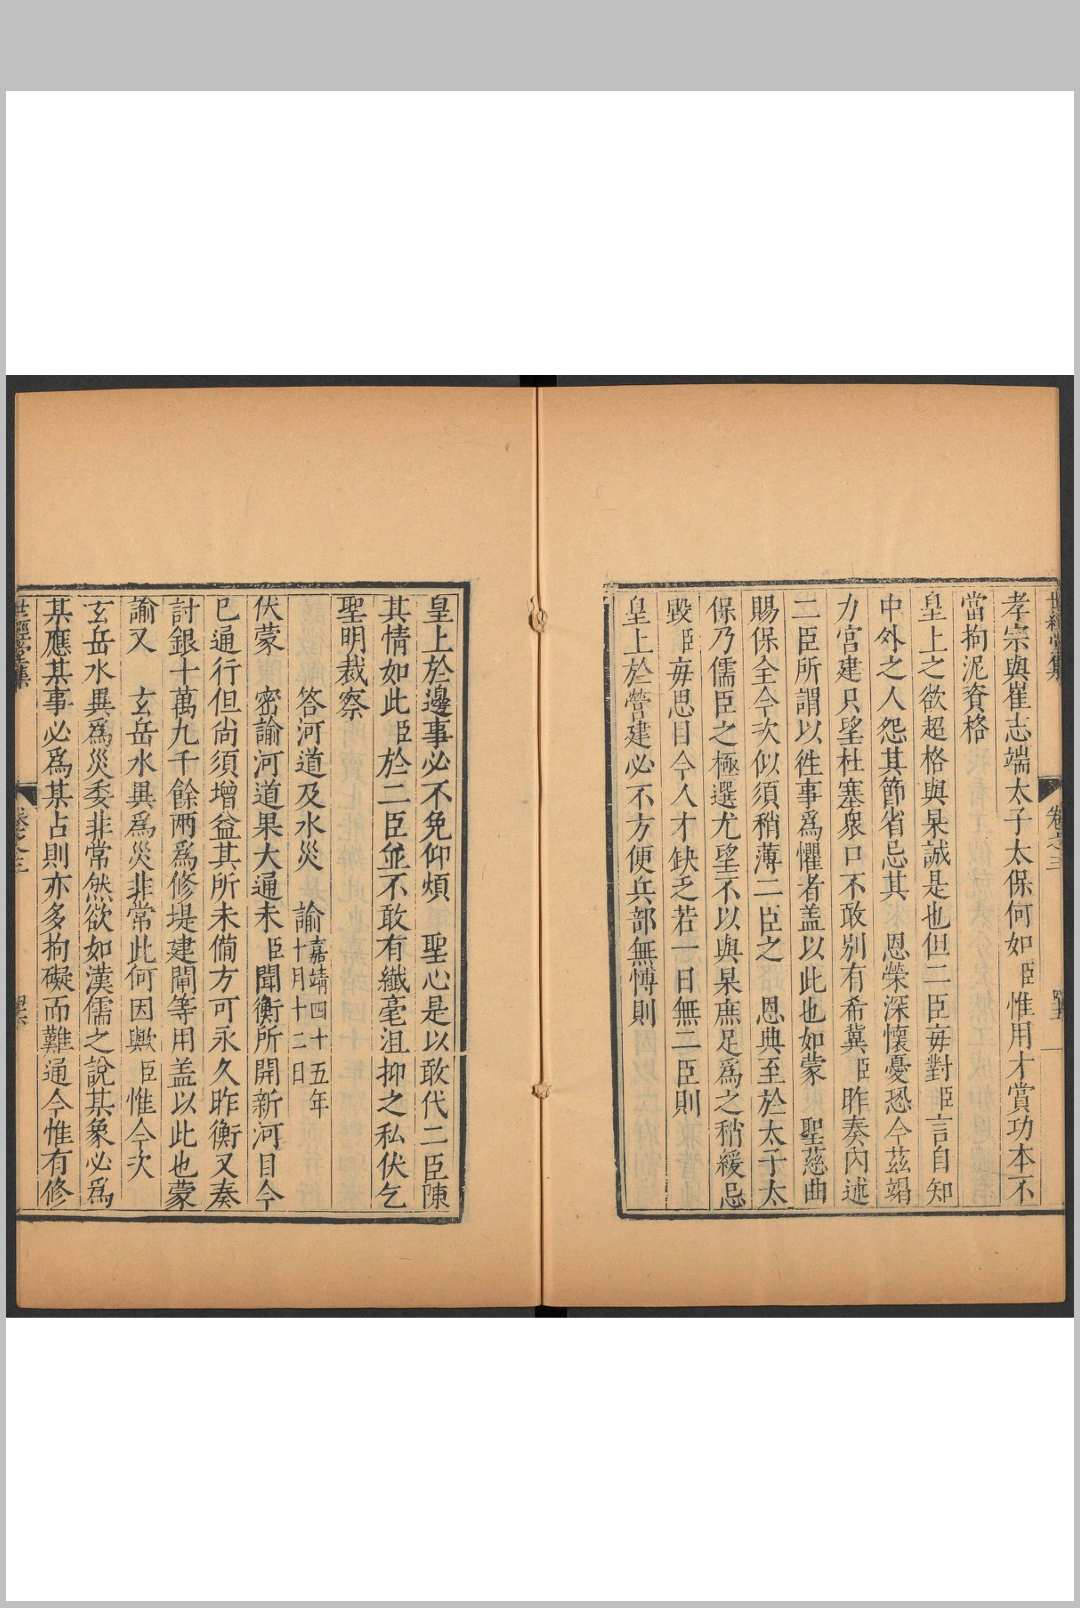 世經堂集
卷之三
孝宗與崔志端太子太保何如臣惟用才賞功本不
當拘泥資格
皇上之欲超格與杲誠是也但二臣每對臣言自知
中外之人怨其節省忌其 恩榮深懷憂恐今茲竭
力宮建只望杜塞衆口不敢别有希冀臣昨奏內述
二臣所謂以徃事爲懼者盖以此也如蒙 聖慈曲
賜保全今次似須稍薄二臣之 恩典至於太子太
保乃儒臣之極選尤望不以與杲庶足爲之稍緩忌
毀臣毎思目今人才缺乏若一日無二臣則
皇上於營建必不方便兵部無愽則
皇上於邊事必不免仰煩 聖心是以敢代二臣陳
其情如此臣於二臣並不敢有纖毫沮抑之私伏乞
聖明裁察
答河道及水災 諭嘉靖四十五年十月十二日
伏蒙 密諭河道果大通未臣聞衡所開新河目今
已通行但尚須增益其所未備方可永久昨衡又奏
討銀十萬九千餘兩爲修堤建閘等用盖以此也蒙
諭又 玄岳水異爲災非常此何因歟臣惟今次
玄岳水異爲災委非常然欲如漢儒之說某象必爲
某應某事必爲某占則亦多拘礙而難通今惟有修
世經堂集
卷之三